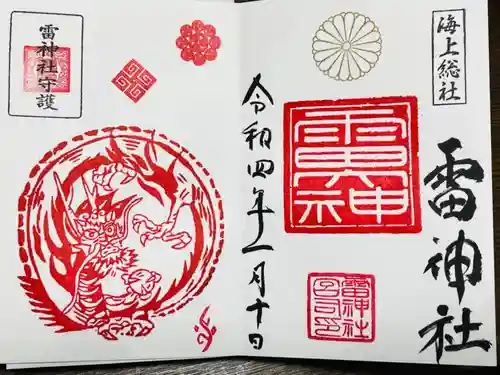 海上総社
雷神社
雷神社
雷神社
令和四年二月十日
雷神社守護